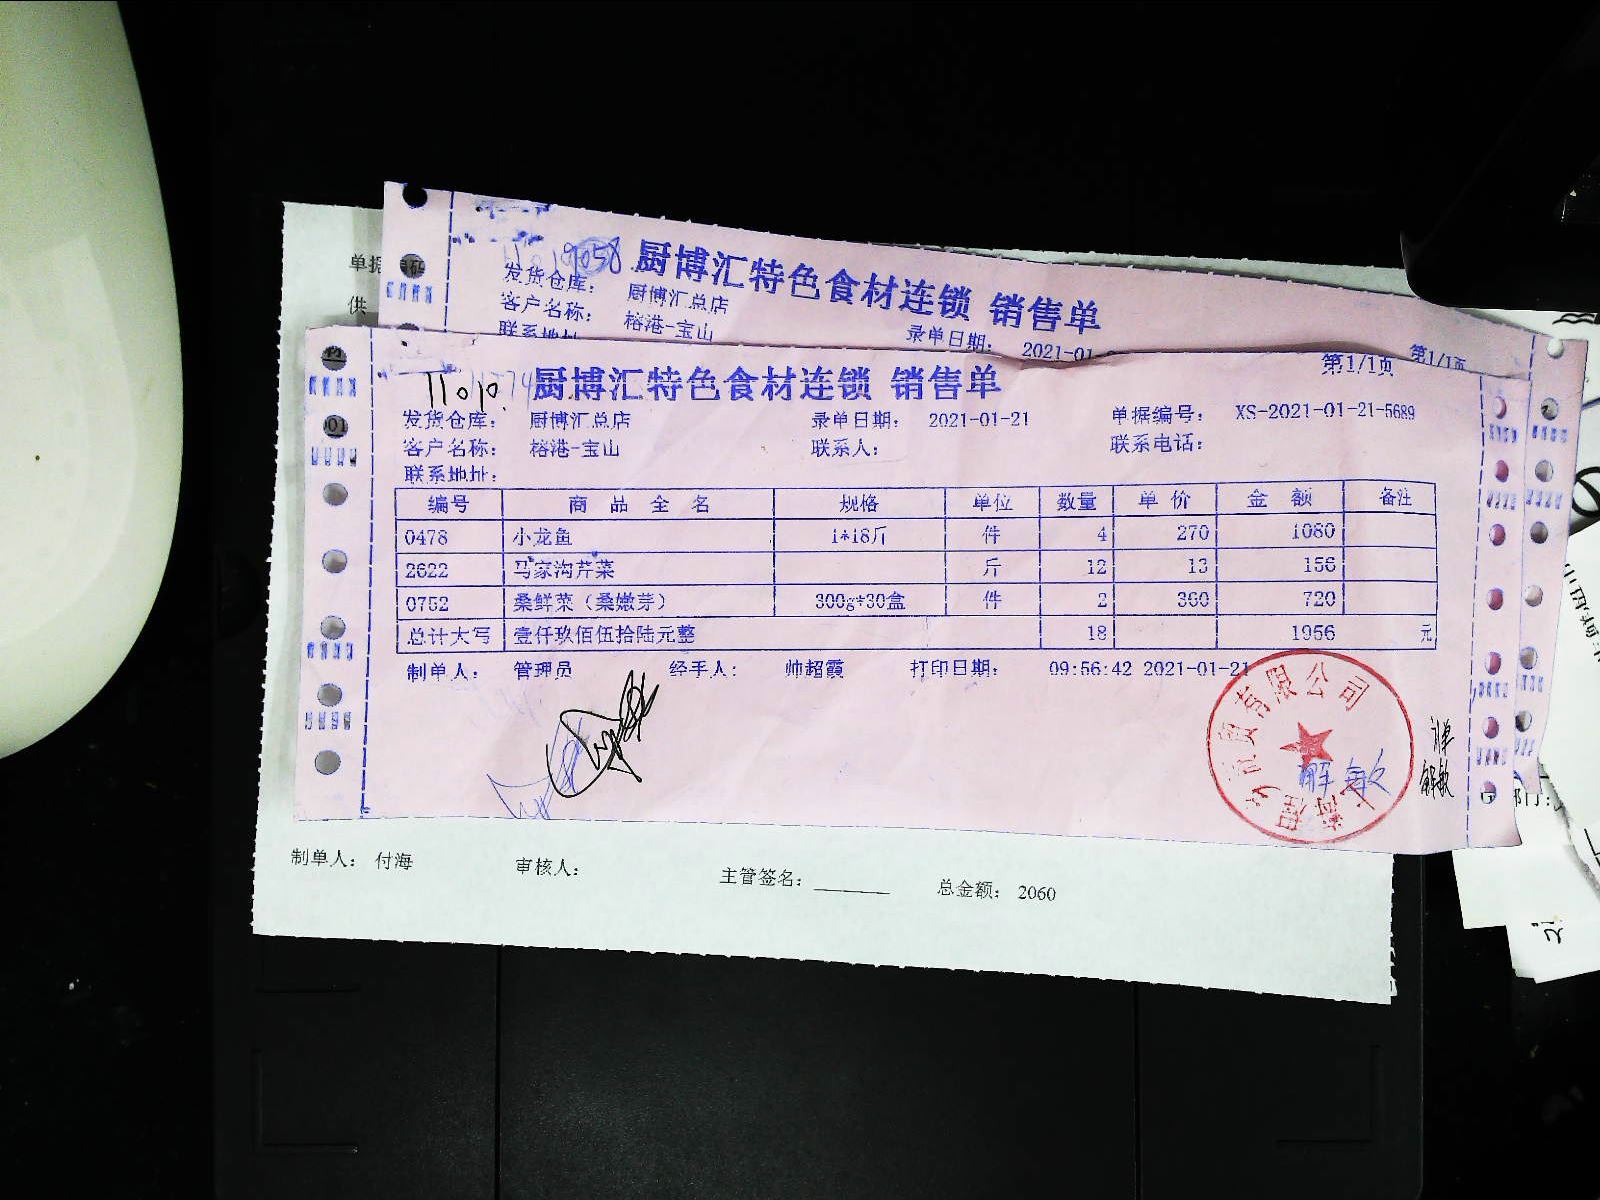 单据
供
19058
厨博汇特色食材连锁 销售单
发货仓库： 厨博汇总店
客户名称： 榕港-宝山
录单日期： 2021-01-
联系地址
第1/1页
第1/1页
厨博汇特色食材连锁 销售单
发货仓库： 厨博汇总店 录单日期： 2021-01-21 单据编号： XS-2021-01-21-5689
客户名称： 榕港-宝山 联系人： 联系电话：
联系地址：
编号 商 品 全 名 规格 单位 数量 单 价 金 额 备注
0478 小龙鱼 1*18斤 件 4 270 1080
2622 马家沟芹菜 斤 12 13 156
0752 桑鲜菜（桑嫩芽） 300g*30盒 件 2 360 720
总计大写 壹仟玖佰伍拾陆元整 18 1956 元
制单人： 管理员 经手人： 帅超霞 打印日期： 09:56:42 2021-01-21
贸有限公司
解敏
解敏
部门：
制单人： 付海 审核人： 主管签名： 总金额： 2060